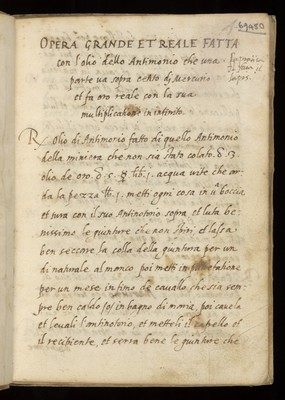 69450
OPERA GRANDE ET REALE FATTA
con l'olio dello Antimonio che una
parte va sopra cento di Mercurio
et fa oro reale con la sua
multiplicatione in infinito.
R Olio di Antimonio fatto di quello Antimonio
della miniera che non sia stato colato
olio de oro acqua vite che ar
da la pezza metti ogni cosa in una boccia
et tura con il suo Antinotorio sopra et luta be
nissimo le giunture che non spiri, et lassa
ben seccare la colla della giuntura per un
di naturale al manco, poi metti in putrefatione
per un mese in fimo de cavallo che sia sem
pre ben caldo in bagno di maria, poi cavala
et levali l'antinotorio, et metteli il capello et
il recipiente, et serra bene le giunture che